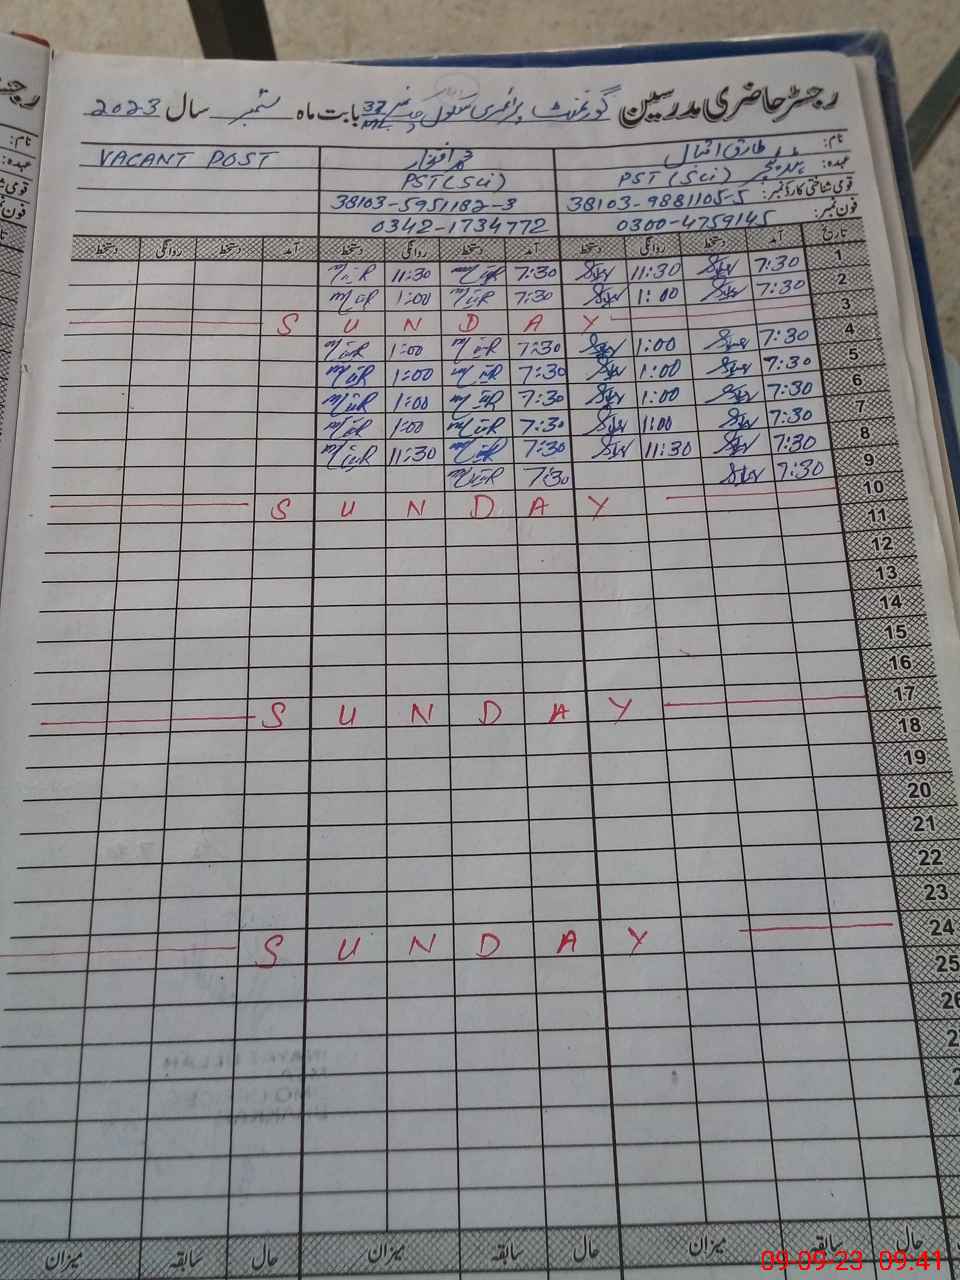 رجسٹر حاضری مدرسین گورنمنٹ پرائمری سکول چک نمبر 37 بابت ماہ ستمبر سال 2023
نام: طارق اقبال محمد افتخار VACANT POST
عہدہ: PST (Sci) PST (Sci)
قومی شناختی کارڈ نمبر: 38103-9881105-5 38103-5951182-3
فون نمبر: 0300-4759145 0342-1734772
تاریخ آمد دستخط روانگی دستخط آمد دستخط روانگی دستخط آمد دستخط روانگی دستخط
1 7:30 11:30 7:30 11:30
2 7:30 1:00 7:30 1:00
3 S U N D A Y
4 7:30 1:00 7:30 1:00
5 7:30 1:00 7:30 1:00
6 7:30 1:00 7:30 1:00
7 7:30 1:00 7:30 1:00
8 7:30 11:30 7:30 11:30
9 7:30 7:30
10 S U N D A Y
11
12
13
14
15
16
17 S U N D A Y
18
19
20
21
22
23
24 S U N D A Y
25
26
حال سابقہ میزان حال سابقہ میزان حال سابقہ میزان
09-09-23 09:41